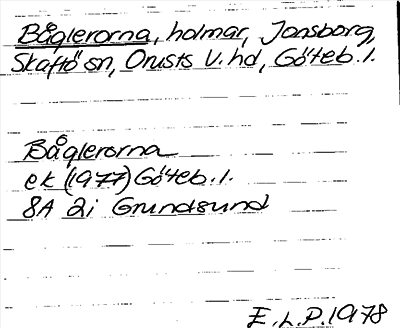 Båglerorna, holmar, Jonsborg,
Skaftö sn, Orusts V. hd, Göteb. l.
Båglerorna
ek (1977) Göteb. l.
8A 2i Grundsund
E.L.P. 1978